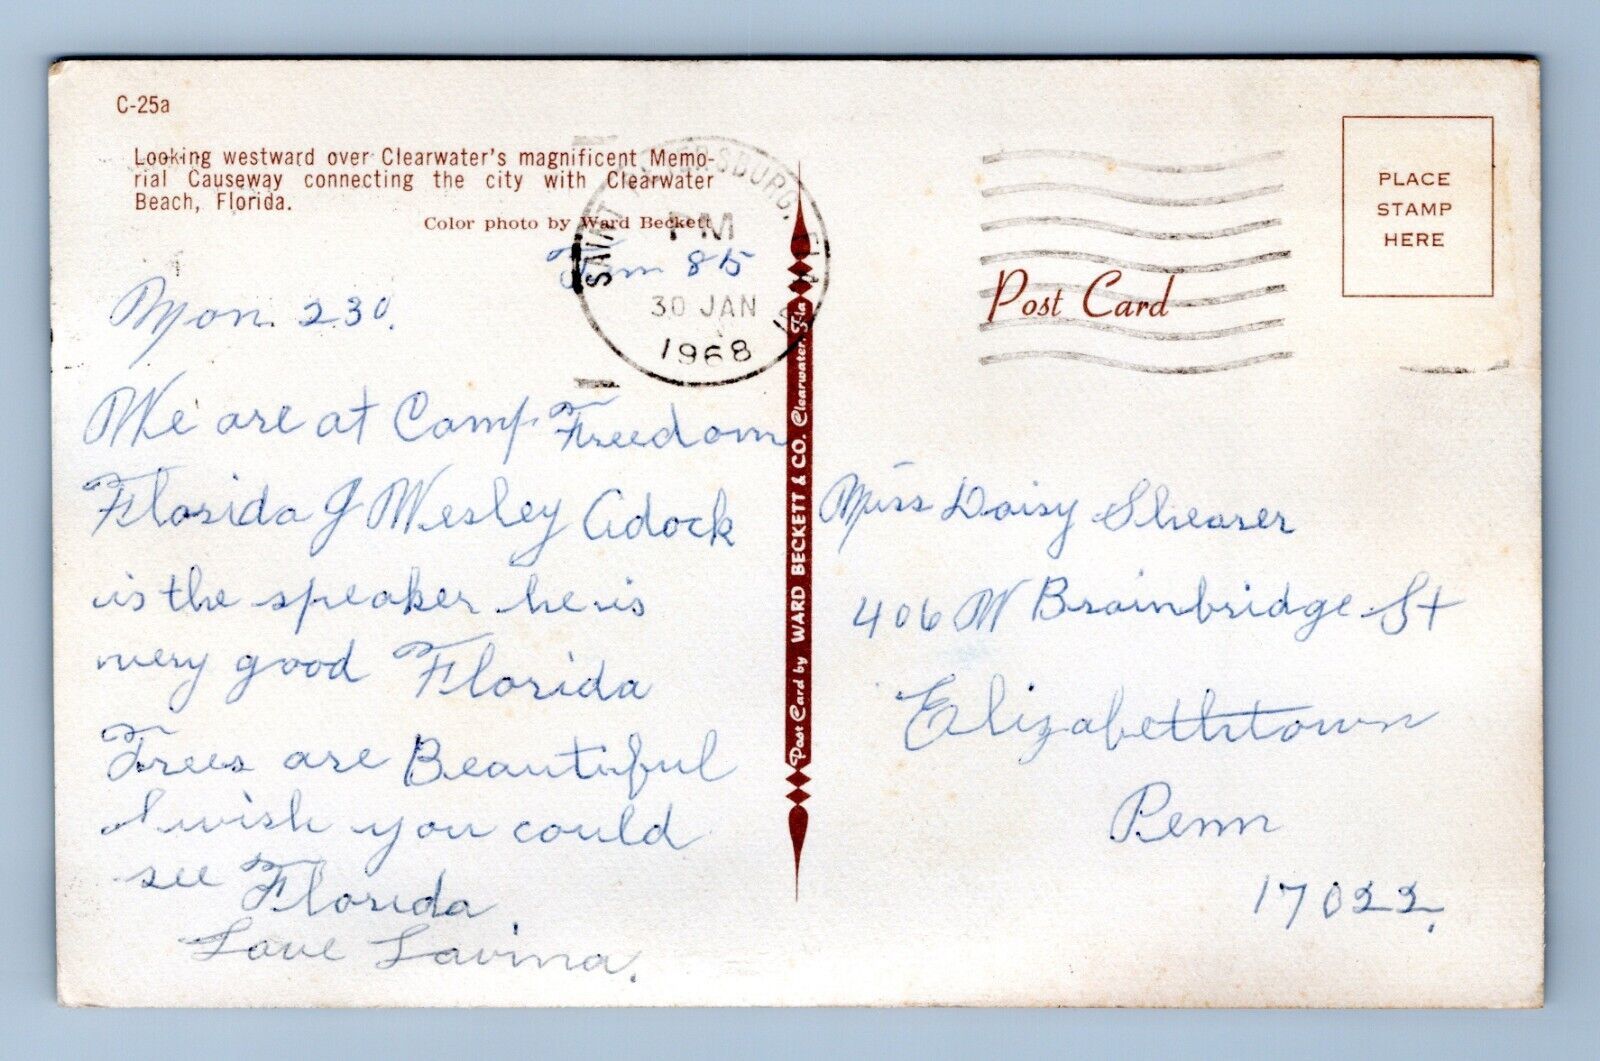 C-25a
Looking westward over Clearwater's magnificent Memo-
rial Causeway connecting the city with Clearwater
Beach, Florida.
Color photo by Ward Beckett
SAINT PETERSBURG, FLA
PM
30 JAN
1968
Mon. 230.
We are at Camp Freedom
Florida J Wesley Adock
is the speaker he is
very good Florida
Trees are Beautiful
I wish you could
see Florida.
Love Lavina.
Post Card by WARD BECKETT & CO. Clearwater, Fla
Post Card
PLACE
STAMP
HERE
Miss Daisy Shearer
406 W Brainbridge St
Elizabethtown
Penn
17022.